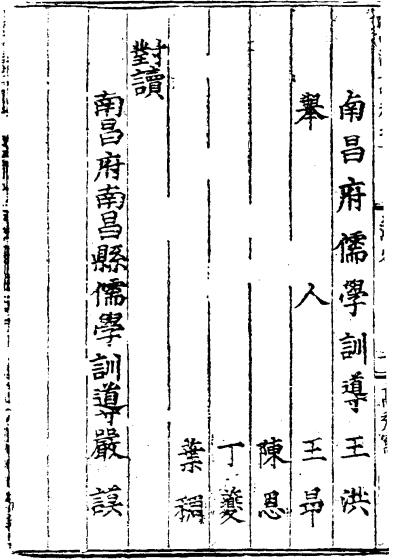 南昌府儒學訓導王洪
舉人王昂
陳恩
丁夔
葉稠
對讀
南昌府南昌縣儒學訓導嚴謨